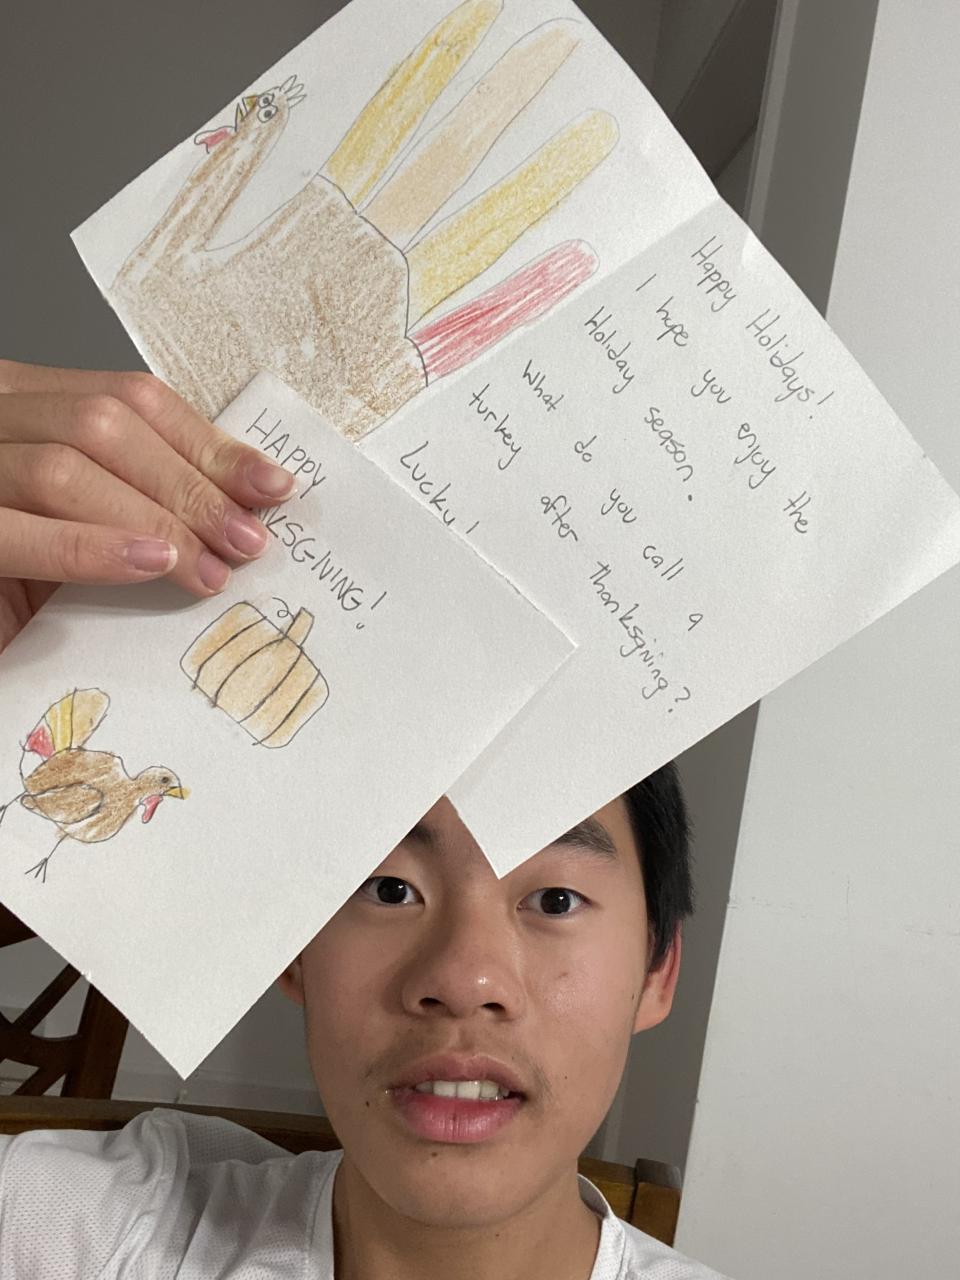 HAPPY
NKSGIVING!
Happy Holidays!
I hope you enjoy the
Holiday season.
What do you call a
turkey after thanksgiving?
Lucky!